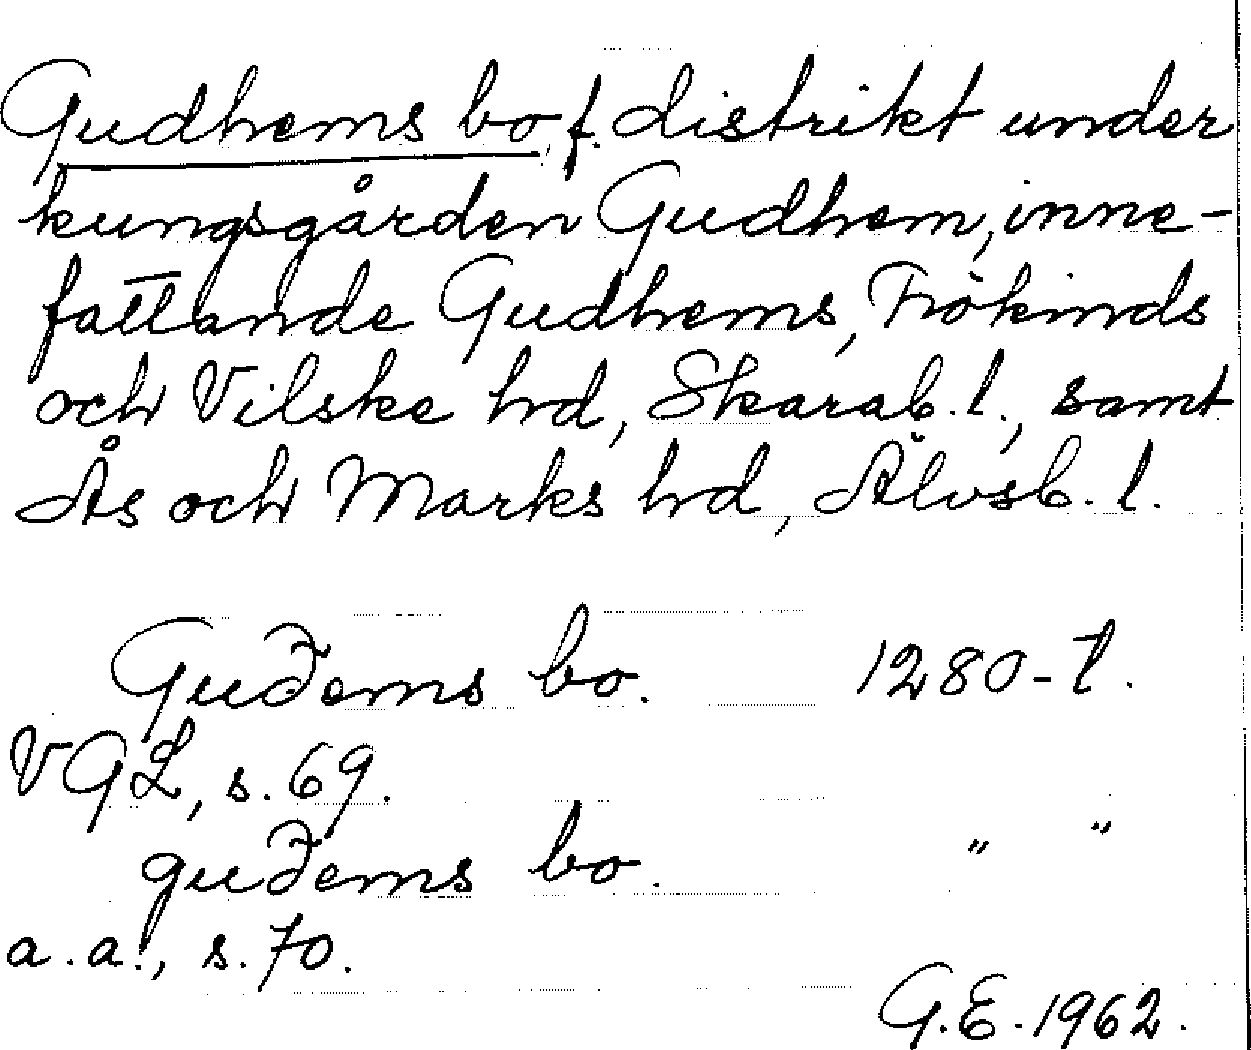 Gudhems bo, f. distrikt under
kungsgården Gudhem, inne-
fattande Gudhems, Frökinds
och Vilske hrd, Skarab. l., samt
Ås och Marks hrd, Älvsb. l.
Guðems bo. 1280-t.
VGL, s. 69.
guðems bo. " "
a.a., s. 70.
G.E. 1962.